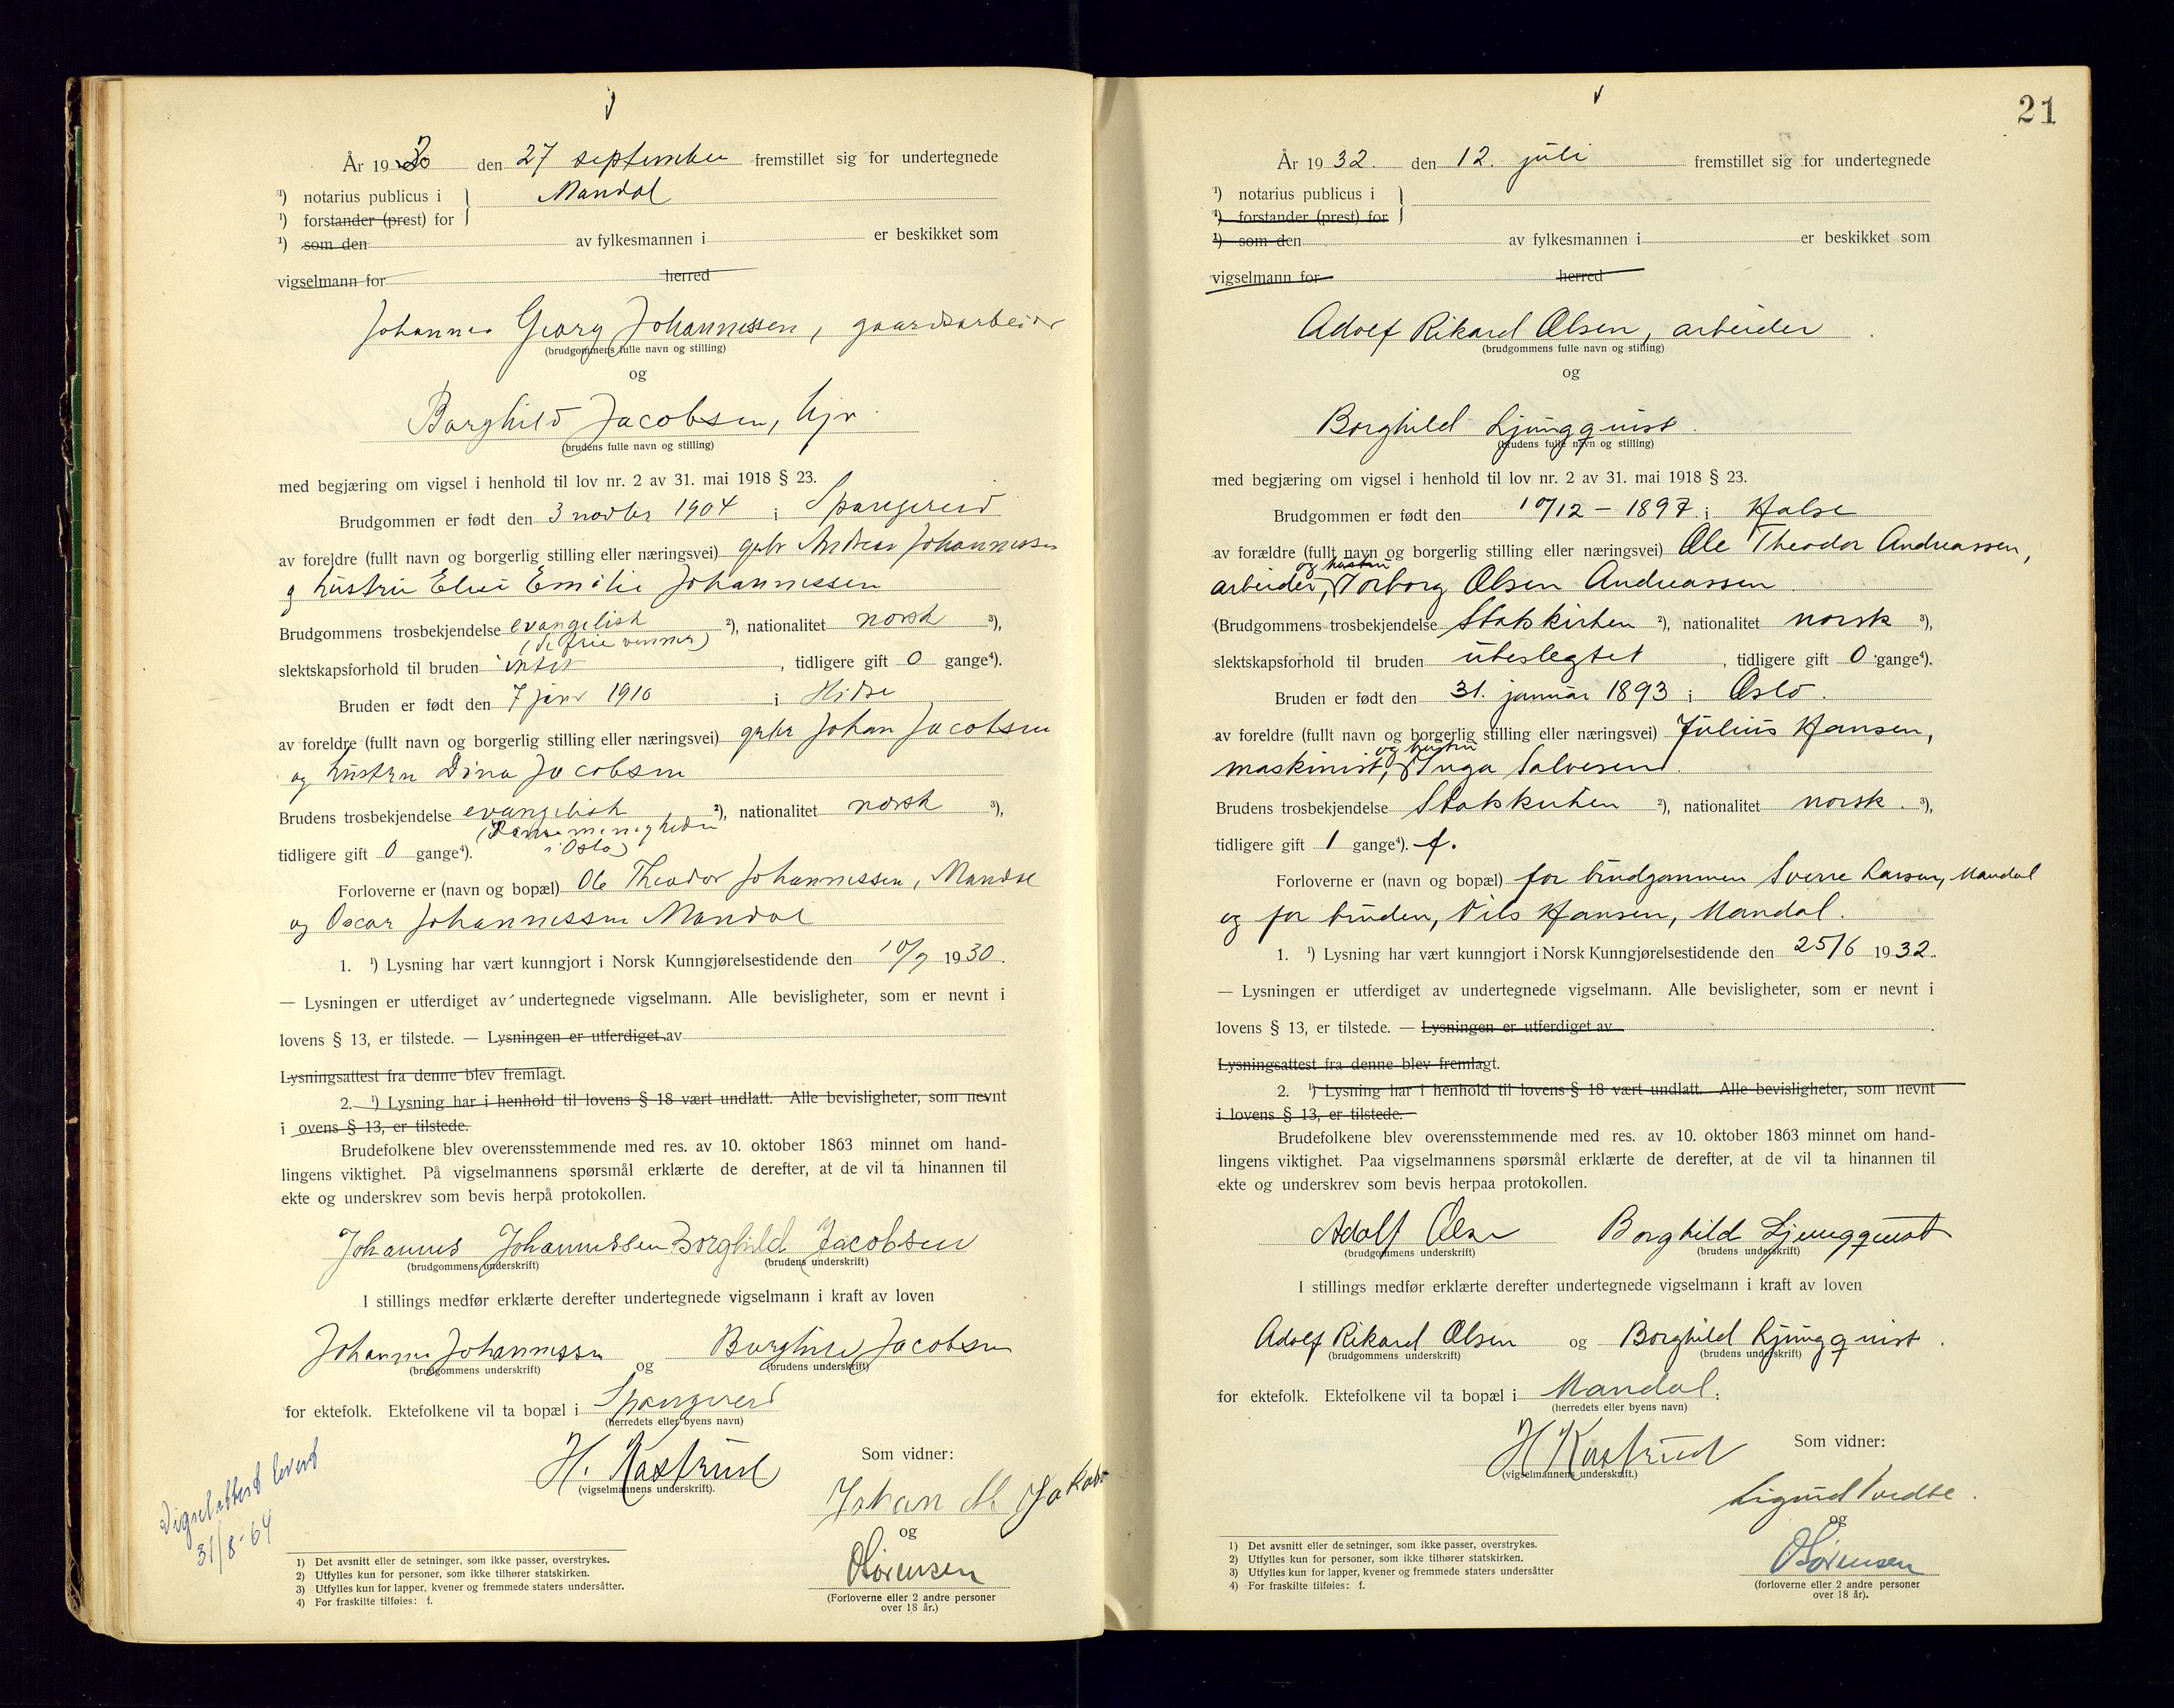 År 1930 den 27 september fremstillet sig for undertegnede
¹) notarius publicus i Mandal
¹) forstander (prest) for
¹) som den av fylkesmannen i er beskikket som
vigselmann for herred
Johannes Georg Johannessen, gaardsarbeider
(brudgommens fulle navn og stilling)
og
Borghild Jacobsen, hjv.
(brudens fulle navn og stilling)
med begjæring om vigsel i henhold til lov nr. 2 av 31. mai 1918 § 23.
Brudgommen er født den 3 novbr 1904 i Spangereid
av foreldre (fullt navn og borgerlig stilling eller næringsvei) gbr Andreas Johannessen
og hustru Emilie Johannessen
Brudgommens trosbekjendelse evangelisk ²), nationalitet norsk ³),
(de frie venner)
slektskapsforhold til bruden intet, tidligere gift 0 gange⁴).
Bruden er født den 7 janr 1910 i Hidse
av foreldre (fullt navn og borgerlig stilling eller næringsvei) gbr Johan Jacobsen
og hustru Dina Jacobsen
Brudens trosbekjendelse evangelisk ²), nationalitet norsk ³),
menigheden
tidligere gift 0 gange⁴). i Oslo)
Forloverne er (navn og bopæl) Ole Theodor Johannessen, Mandal
og Oscar Johannessen Mandal
1. ¹) Lysning har vært kunngjort i Norsk Kunngjørelsestidende den 10/9 1930.
— Lysningen er utferdiget av undertegnede vigselmann. Alle bevisligheter, som er nevnt i
lovens § 13, er tilstede. — Lysningen er utferdiget av
Lysningsattest fra denne blev fremlagt.
2. ¹) Lysning har i henhold til lovens § 18 vært undlatt. Alle bevisligheter, som nevnt
i ovens § 13, er tilstede.
Brudefolkene blev overensstemmende med res. av 10. oktober 1863 minnet om hand-
lingens viktighet. På vigselmannens spørsmål erklærte de derefter, at de vil ta hinannen til
ekte og underskrev som bevis herpå protokollen.
Johannes Johannessen Borghild Jacobsen
(brudgommens underskrift) (brudens underskrift)
I stillings medfør erklærte derefter undertegnede vigselmann i kraft av loven
Johannes Johannessen og Borghild Jacobsen
(brudgommens underskrift) (brudens underskrift)
for ektefolk. Ektefolkene vil ta bopæl i Spangereid
(herredets eller byens navn)
H. Kastrud Som vidner:
(vigselmannens underskrift).
Johan M Jakobs
og
OSörensen
(Forloverne eller 2 andre personer
over 18 år.)
Vigselattest levert
31/8-64
1) Det avsnitt eller de setninger, som ikke passer, overstrykes.
2) Utfylles kun for personer, som ikke tilhører statskirken.
3) Utfylles kun for lapper, kvener og fremmede staters undersåtter.
4) For fraskilte tilføies: f.
21
År 1932. den 12. juli fremstillet sig for undertegnede
¹) notarius publicus i
¹) forstander (prest) for
¹) som den av fylkesmannen i er beskikket som
vigselmann for herred
Adolf Rikard Olsen, arbeider
(brudgommens fulle navn og stilling)
og
Borghild Ljungquist.
(brudens fulle navn og stilling)
med begjæring om vigsel i henhold til lov nr. 2 av 31. mai 1918 § 23.
Brudgommen er født den 10/12 – 1897 i Halse
av forældre (fullt navn og borgerlig stilling eller næringsvei) Ole Theodor Andreassen,
og hustru
arbeider, Torborg Olsen Andreassen
(Brudgommens trosbekjendelse Statskirken ²), nationalitet norsk ³),
slektskapsforhold til bruden ubeslegtet, tidligere gift 0 gange⁴).
Bruden er født den 31. januar 1893 i Oslo.
av foreldre (fullt navn og borgerlig stilling eller næringsvei) Julius Hansen,
og hustru
maskinist, Inga Salvesen.
Brudens trosbekjendelse Statskirken ²), nationalitet norsk. ³),
tidligere gift 1 gange⁴). f.
Forloverne er (navn og bopæl) for brudgommen Sverre Larsen, Mandal
og for bruden, Nils Hansen, Mandal.
1. ¹) Lysning har vært kunngjort i Norsk Kunngjørelsestidende den 25/6 1932.
— Lysningen er utferdiget av undertegnede vigselmann. Alle bevisligheter, som er nevnt i
lovens § 13, er tilstede. — Lysningen er utferdiget av
Lysningsattest fra denne blev fremlagt.
2. ¹) Lysning har i henhold til lovens § 18 vært undlatt. Alle bevisligheter, som nevnt
i lovens § 13, er tilstede.
Brudefolkene blev overensstemmende med res. av 10. oktober 1863 minnet om hand-
lingens viktighet. Paa vigselmannens spørsmål erklærte de derefter, at de vil ta hinannen til
ekte og underskrev som bevis herpaa protokollen.
Adolf Olsen Borghild Ljungquist
(brudgommens underskrift) (brudens underskrift)
I stillings medfør erklærte derefter undertegnede vigselmann i kraft av loven
Adolf Rikard Olsen og Borghild Ljungquist.
(brudgommens underskrift) (brudens underskrift)
for ektefolk. Ektefolkene vil ta bopæl i Mandal.
(herredets eller byens navn)
H Kastrud Som vidner:
(vigselmannens underskrift.)
Sigurd
og
OSörensen
(forloverne eller 2 andre personer
over 18 år).
1) Det avsnitt eller de setninger, som ikke passer, overstrykes.
2) Utfylles kun for personer, som ikke tilhører statskirken.
3) Utfylles kun for lapper, kvener og fremmede staters undersåtter
4) For fraskilte tilføies: f.